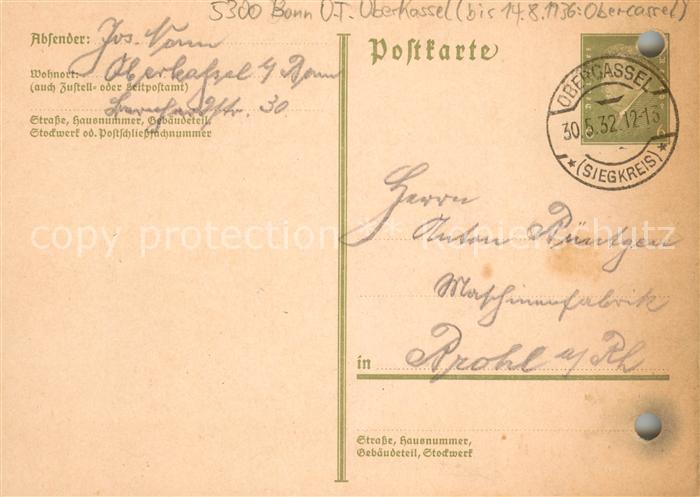 5300 Bonn O.T. Oberkassel (bis 14.8.1936: Obercassel)
Absender: Jos. Nonn
Wohnort: Oberkassel b/ Bonn
(auch Zustell- oder Leitpostamt)
30.
Straße, Hausnummer, Gebäudeteil,
Stockwerk od. Postschließfachnummer
Postkarte
OBERCASSEL
30.5.32.12-13
* (SIEGKREIS) *
Herrn
Anton Röntgen
Maschinenfabrik
in Brohl a/Rh
Straße, Hausnummer,
Gebäudeteil, Stockwerk
copy protection * * Kopierschutz